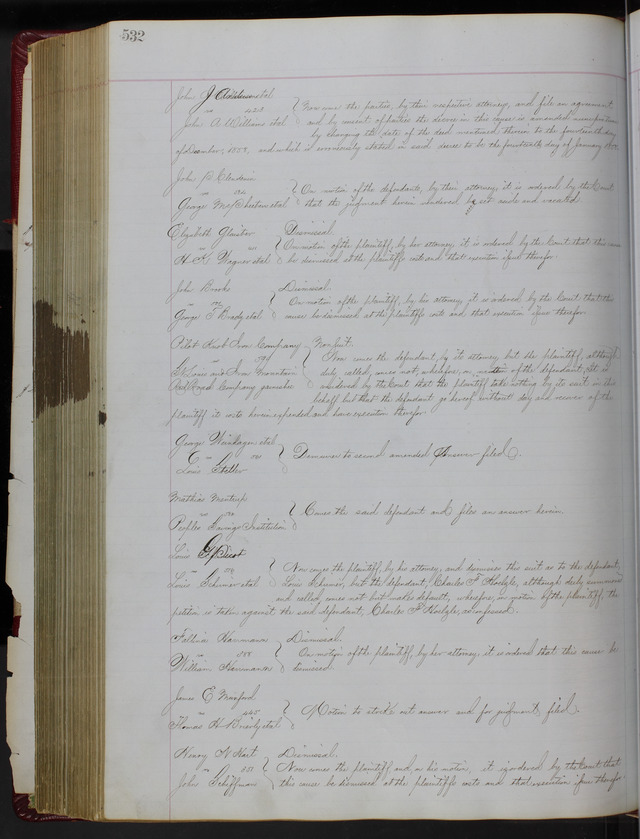 532
John J Anderson et al
vs 423 Now come the parties, by their respective attorneys, and file an agreement
John A. Williams et al and by consent of parties the decree in this cause is amended
by changing the date of the deed mentioned therein to the fourteenth day
of December, 1858, and which is erroneously stated in said decree to be the fourteenth day of January
John
vs On motion of the defendants, by their attorney, it is ordered by the Court
George et al that the judgment herein rendered be set aside and vacated.
Elizabeth Dismissal.
vs On motion of the plaintiff, by her attorney it is ordered by the Court that this cause
H. K. Wagner et al be dismissed at the plaintiffs costs and that execution issue therefor.
John Brooks Dismissal.
vs On motion of the plaintiff, by his attorney it is ordered by the Court that this
George T Brady et al cause be dismissed at the plaintiffs costs and that execution issue therefor.
Pilot Knob Iron Company Non suit.
vs Now comes the defendant, by its attorney, but the plaintiff, although
St Louis and Iron Mountain duly called, comes not, wherefore, on motion of the defendant, it is
Rail Road Company garnishee ordered by the Court that the plaintiff take nothing by its suit in this
behalf but that the defendant go hereof without day and recover of the
plaintiff its costs herein expended and have execution therefor
George et al
vs Demurrer to second amended Answer filed.
Louis
Mathias
vs Comes the said defendant and files an answer herein.
Peoples Savings Institution
Louis Picot
vs Now comes the plaintiff, by his attorney, and dismisses this suit as to the defendant,
Louis Schirmer et al Louis Schirmer, but the defendant, Charles F. although duly summoned
and called, comes not but makes default, wherefore, on motion of the plaintiff, the
petition is taken against the said defendant, Charles F. as confessed.
Hammann Dismissal.
vs On motion of the plaintiff, by her attorney it is ordered that this cause be
William Hammann dismissed.
James E
vs 445 Motion to strike out answer and for judgment, filed.
Thomas H. et al
Henry N Hart Dismissal.
vs 551 Now comes the plaintiff and, on his motion, it is ordered by the Court that
John Schiffman this cause be dismissed at the plaintiffs costs and that execution issue therefor